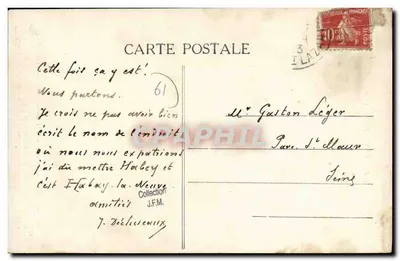 CARTE POSTALE
Cette fois ça y est!
Nous partons.
Je crois ne pas avoir bien
écrit le nom de l'endroit
où nous nous expatrions
j'ai du mettre Habey et
c'est Habay-la-Neuve
amitiés
61
Collection
J.F.M.
10
Mr Gaston Léger
Parc St Maur
Seine
CPAPHIL